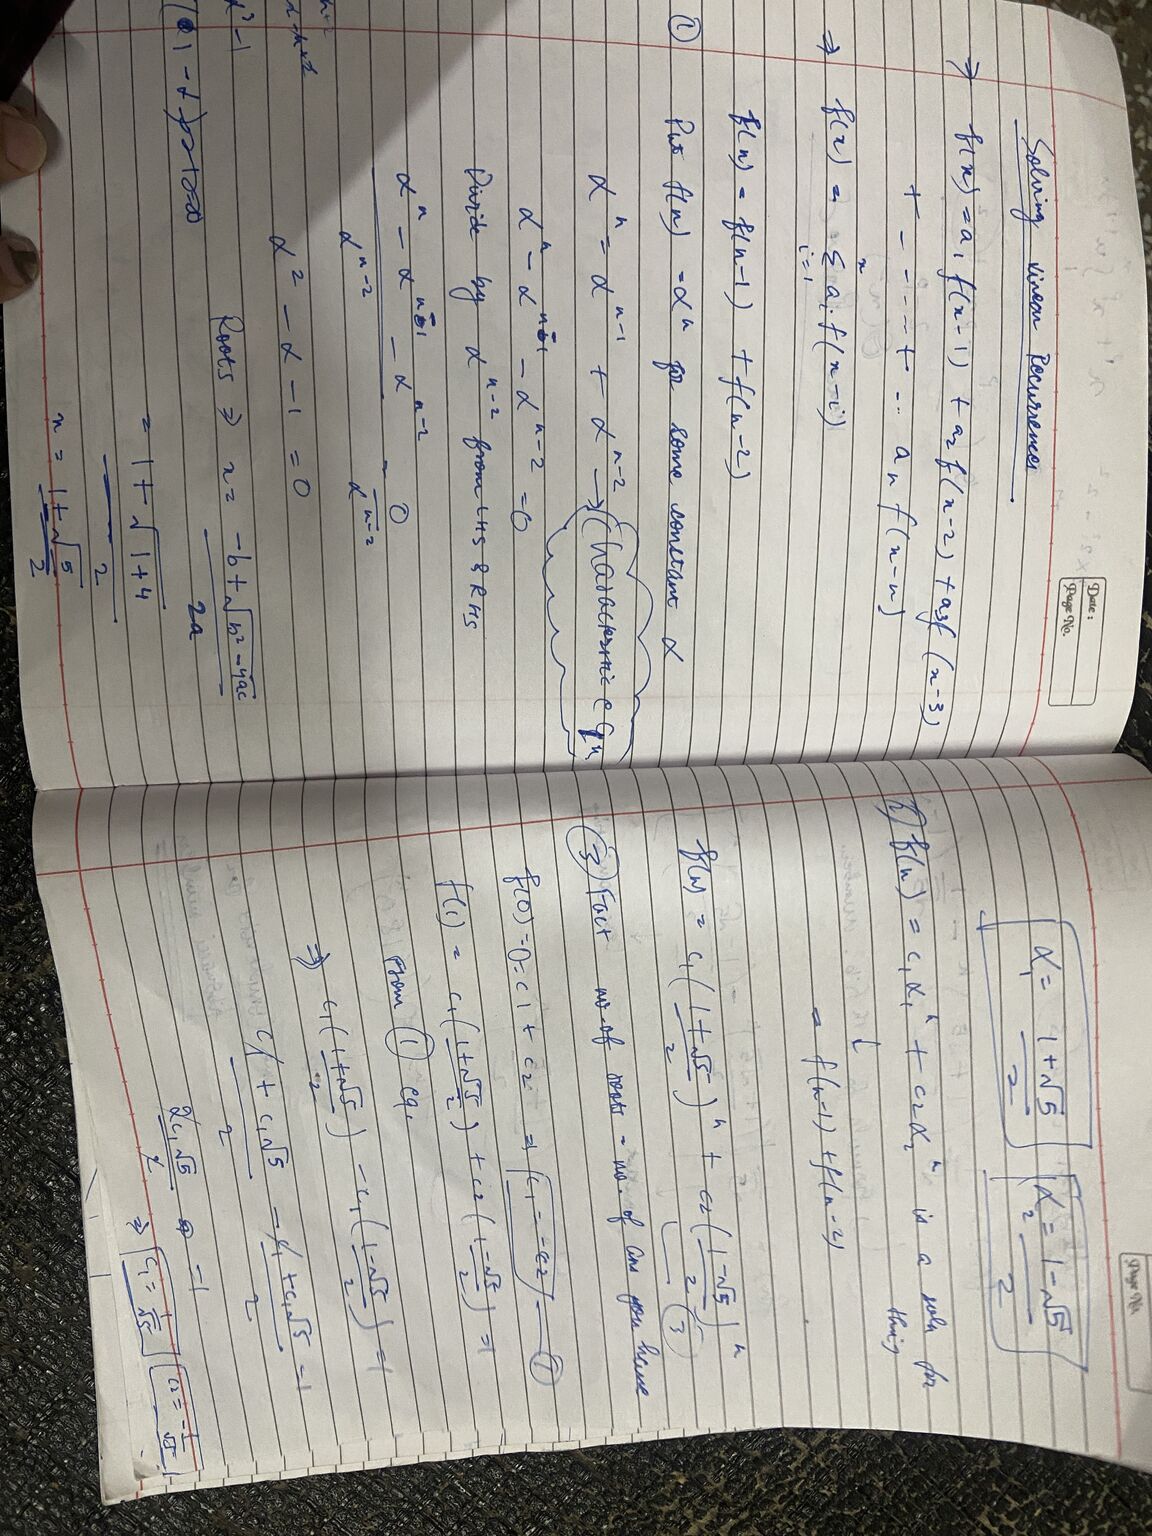 Date:
Page No.
Solving Linear Recurrences
⇒ f(x) = a₁ f(x-1) + a₂ f(x-2) + a₃f (x-3)
+ - - - - + ... aₙ f(x-n)
⇒ f(x) = Σⁿᵢ₌₁ aᵢ f(x-i)
f(n) = f(n-1) + f(n-2)
① Put f(n) = αⁿ for some constant α
αⁿ = αⁿ⁻¹ + αⁿ⁻² → Characteristic eqⁿ
αⁿ - αⁿ⁻¹ - αⁿ⁻² = 0
Divide by αⁿ⁻² from LHS & RHS
(αⁿ - αⁿ⁻¹ - αⁿ⁻²) / αⁿ⁻² = 0 / αⁿ⁻²
α² - α - 1 = 0
Roots ⇒ x = (-b ± √(b² - 4ac)) / 2a
= (1 ± √(1+4)) / 2
x = (1 ± √5) / 2
Page No.
α₁ = (1+√5) / 2 α₂ = (1-√5) / 2
2) f(n) = c₁α₁ⁿ + c₂α₂ⁿ is a soln for
this
= f(n-1) + f(n-2)
f(n) = c₁((1+√5)/2)ⁿ + c₂((1-√5)/2)ⁿ (3)
③ Fact no. of roots = no. of ans you have
f(0) = 0 = c1 + c₂ ⇒ c₁ = -c₂ — ①
f(1) = c₁((1+√5)/2) + c₂((1-√5)/2) = 1
From ① eq.
⇒ c₁((1+√5)/2) - c₁((1-√5)/2) = 1
(c₁ + c₁√5)/2 (- c₁ + c₁√5)/2 = 1
2c₁√5 / 2 = 1
⇒ c₁ = 1/√5 c₂ = -1/√5